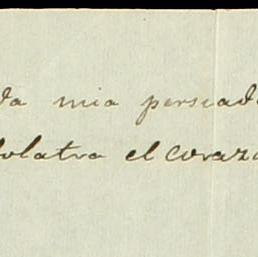 da mia persuad
dolatra el coraz